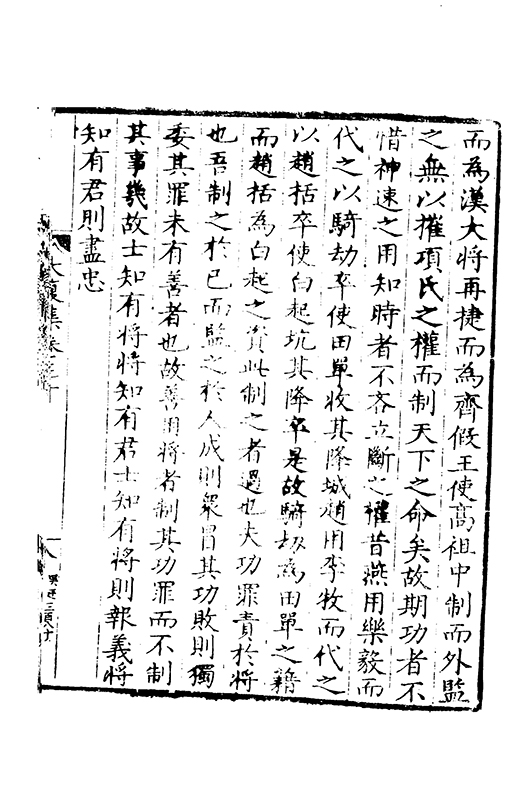 而為漢大将再捷而為齊假王使髙祖中制而外監
之無以摧項氏之權而制天下之命矣故期功者不
惜神速之用知時者不吝立斷之權昔燕用樂毅而
代之以騎劫卒使田單收其降城趙用李牧而代之
以趙括卒使白起坑其降卒是故騎劫為田單之籍
而趙括為白起之資此制之者過也夫功罪責於將
也吾制之於己而監之於人成則衆冒其功敗則獨
委其罪未有善者也故善用將者制其功罪而不制
其事幾故士知有將將知有君士知有將則報義將
知有君則盡忠
集卷